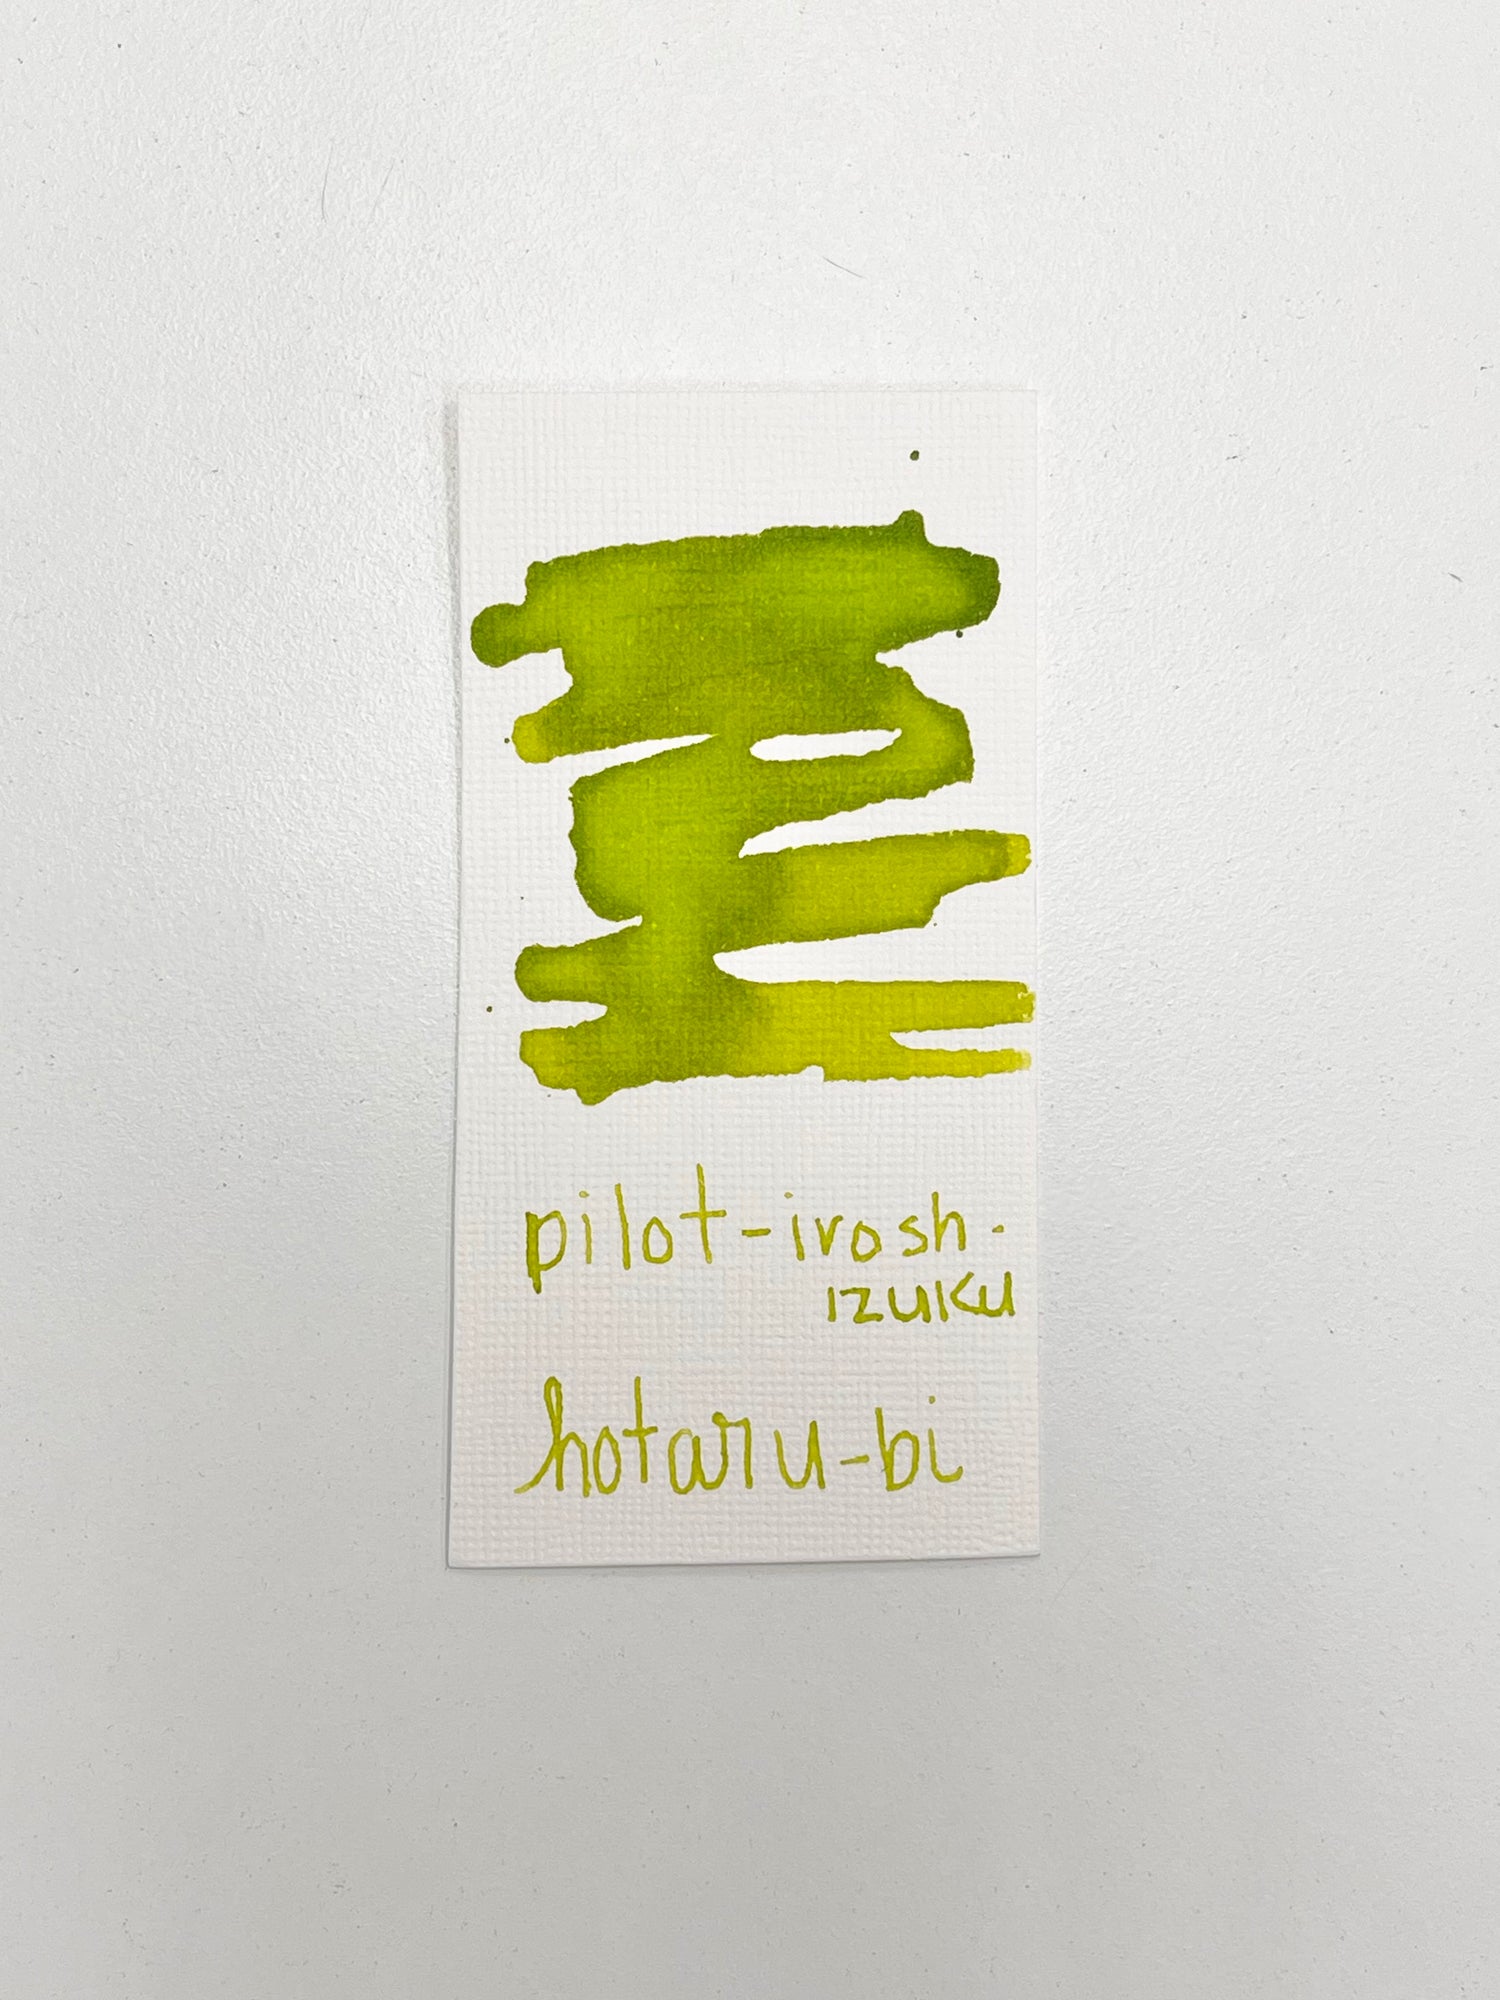 pilot-irosh-
izuku
hotaru-bi